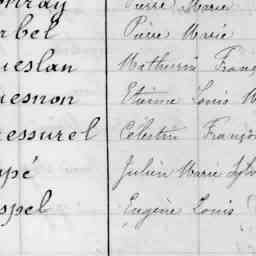 Pierre Marie
rbel Pierre Marie
ueslan Mathurin Franç
uesnon Etienne Louis M
essurel Célestin Franço
ppé Julien Marie Sylv
spel Eugène Louis